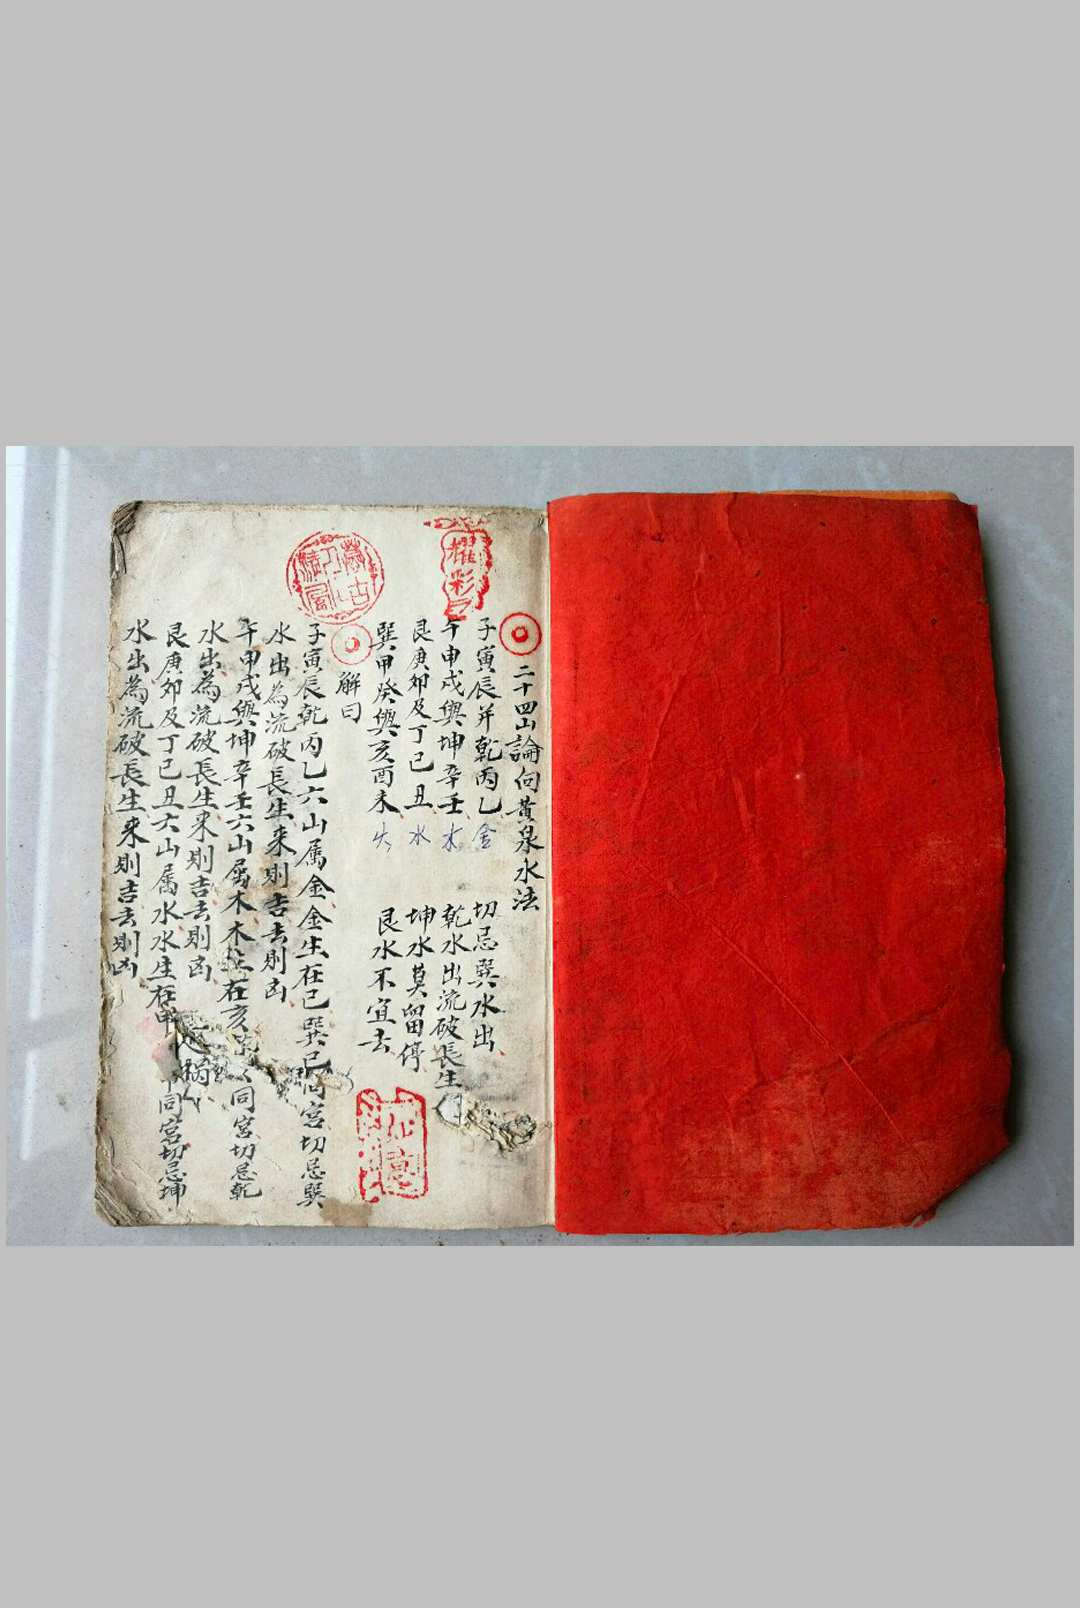 二十四山論向黃泉水法
子寅辰并乾丙乙 金 切忌巽水出
午申戌與坤辛壬 木 乾水出流破長生
艮庚卯及丁巳丑 水 坤水莫留停
巽甲癸與亥酉未 火 艮水不宜去
解曰
子寅辰乾丙乙六山屬金金生在巳巽巳同宮切忌巽
水出為流破長生來則吉去則凶
午申戌與坤辛壬六山屬木木在亥同宮切忌乾
水出為流破長生來則吉去則凶
艮庚卯及丁巳丑六山屬水水生在申同宮切忌坤
水出為流破長生來則吉去則凶
耀彩